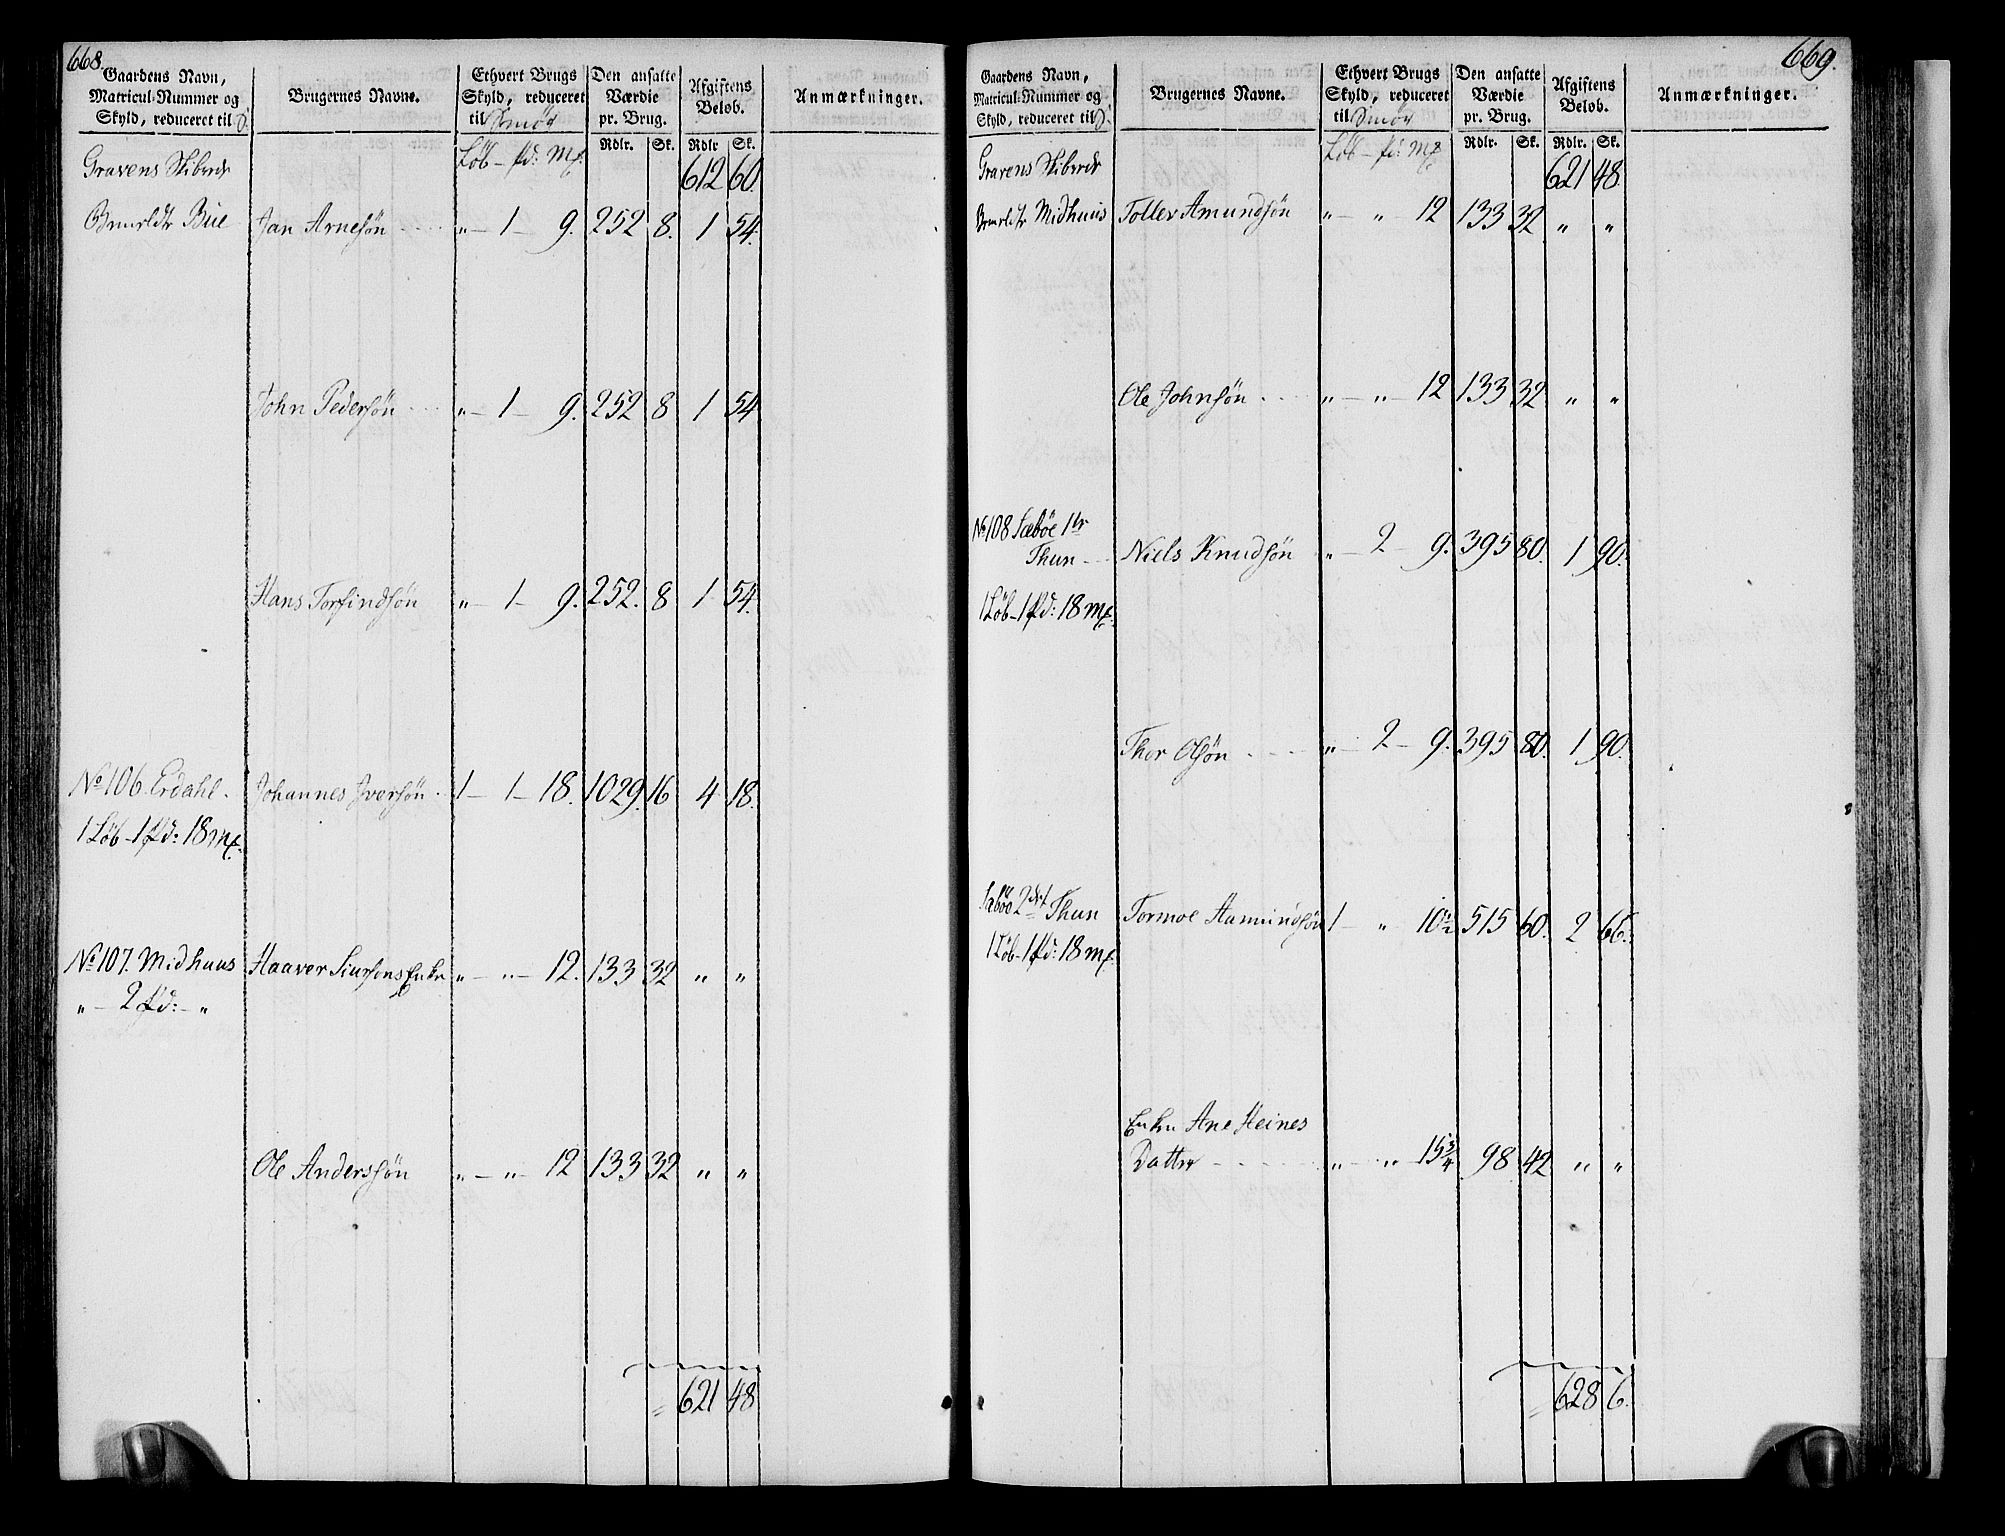 668.
Gaardens Navn, Matricul-Nummer og Skyld, reduceret til D. | Brugernes Navne. | Ethvert Brugs Skyld, reduceret til Smör | Den ansatte Værdie pr. Brug. | Afgiftens Belob. | Anmærkninger.
Löb – Pd: Mf. | Rdlr. | Sk. | Rdlr | Sk.
Gravens Skibrede 612 60.
Bue Jan Arnesön " – 1 – 9. 252 8. 1 54.
John Pedersön " – 1 – 9. 252 8 1 54
Hans Torfindsön " – 1 – 9. 252. 8 1 54.
No 106. Erdahl. Johannes Iversön 1 – 1 – 18. 1029. 16 4 18.
1 Löb – 1 Pd: 18 mf.
No 107. Midhuus Haaver Siursons Enke " – " – 12. 133 32 " "
" – 2 Pd: – "
Ole Anderssön " – " – 12 133 32 " "
621 48
669.
Gaardens Navn, Matricul-Nummer og Skyld, reduceret til D. | Brugernes Navne. | Ethvert Brugs Skyld, reduceret til Smör | Den ansatte Værdie pr. Brug. | Afgiftens Belob. | Anmærkninger.
Löb – Pd: Mf | Rdlr. | Sk. | Rdlr. | Sk.
Gravens Skibrede 621 48.
Midhuus Toller Amundsön " – " – 12 133 32 " "
Ole Johnsön " – " – 12 133 32 " "
No 108 Sæböe 1te
Thun Niels Knudsön " – 2 – 9. 395 80. 1 90.
1 Löb – 1 Pd: 18 mf.
Thor Olsön " – 2 – 9. 395 80. 1 90.
Sæböe 2det Thun Tormoe Hammundsön 1 – " 10½ 515 60. 2 66.
1 Löb – 1 Pd: 18 mf.
Enke Ane Heines
Datter " – " – 15¾ 98 42 " "
628 6.